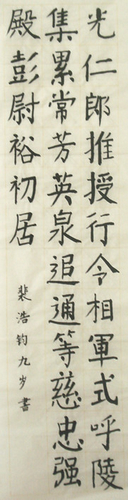 光仁郎推授行令相軍式呼陵
集累常芳英泉追通等慈忠强
殿彭尉裕初居
裴浩钧九岁書